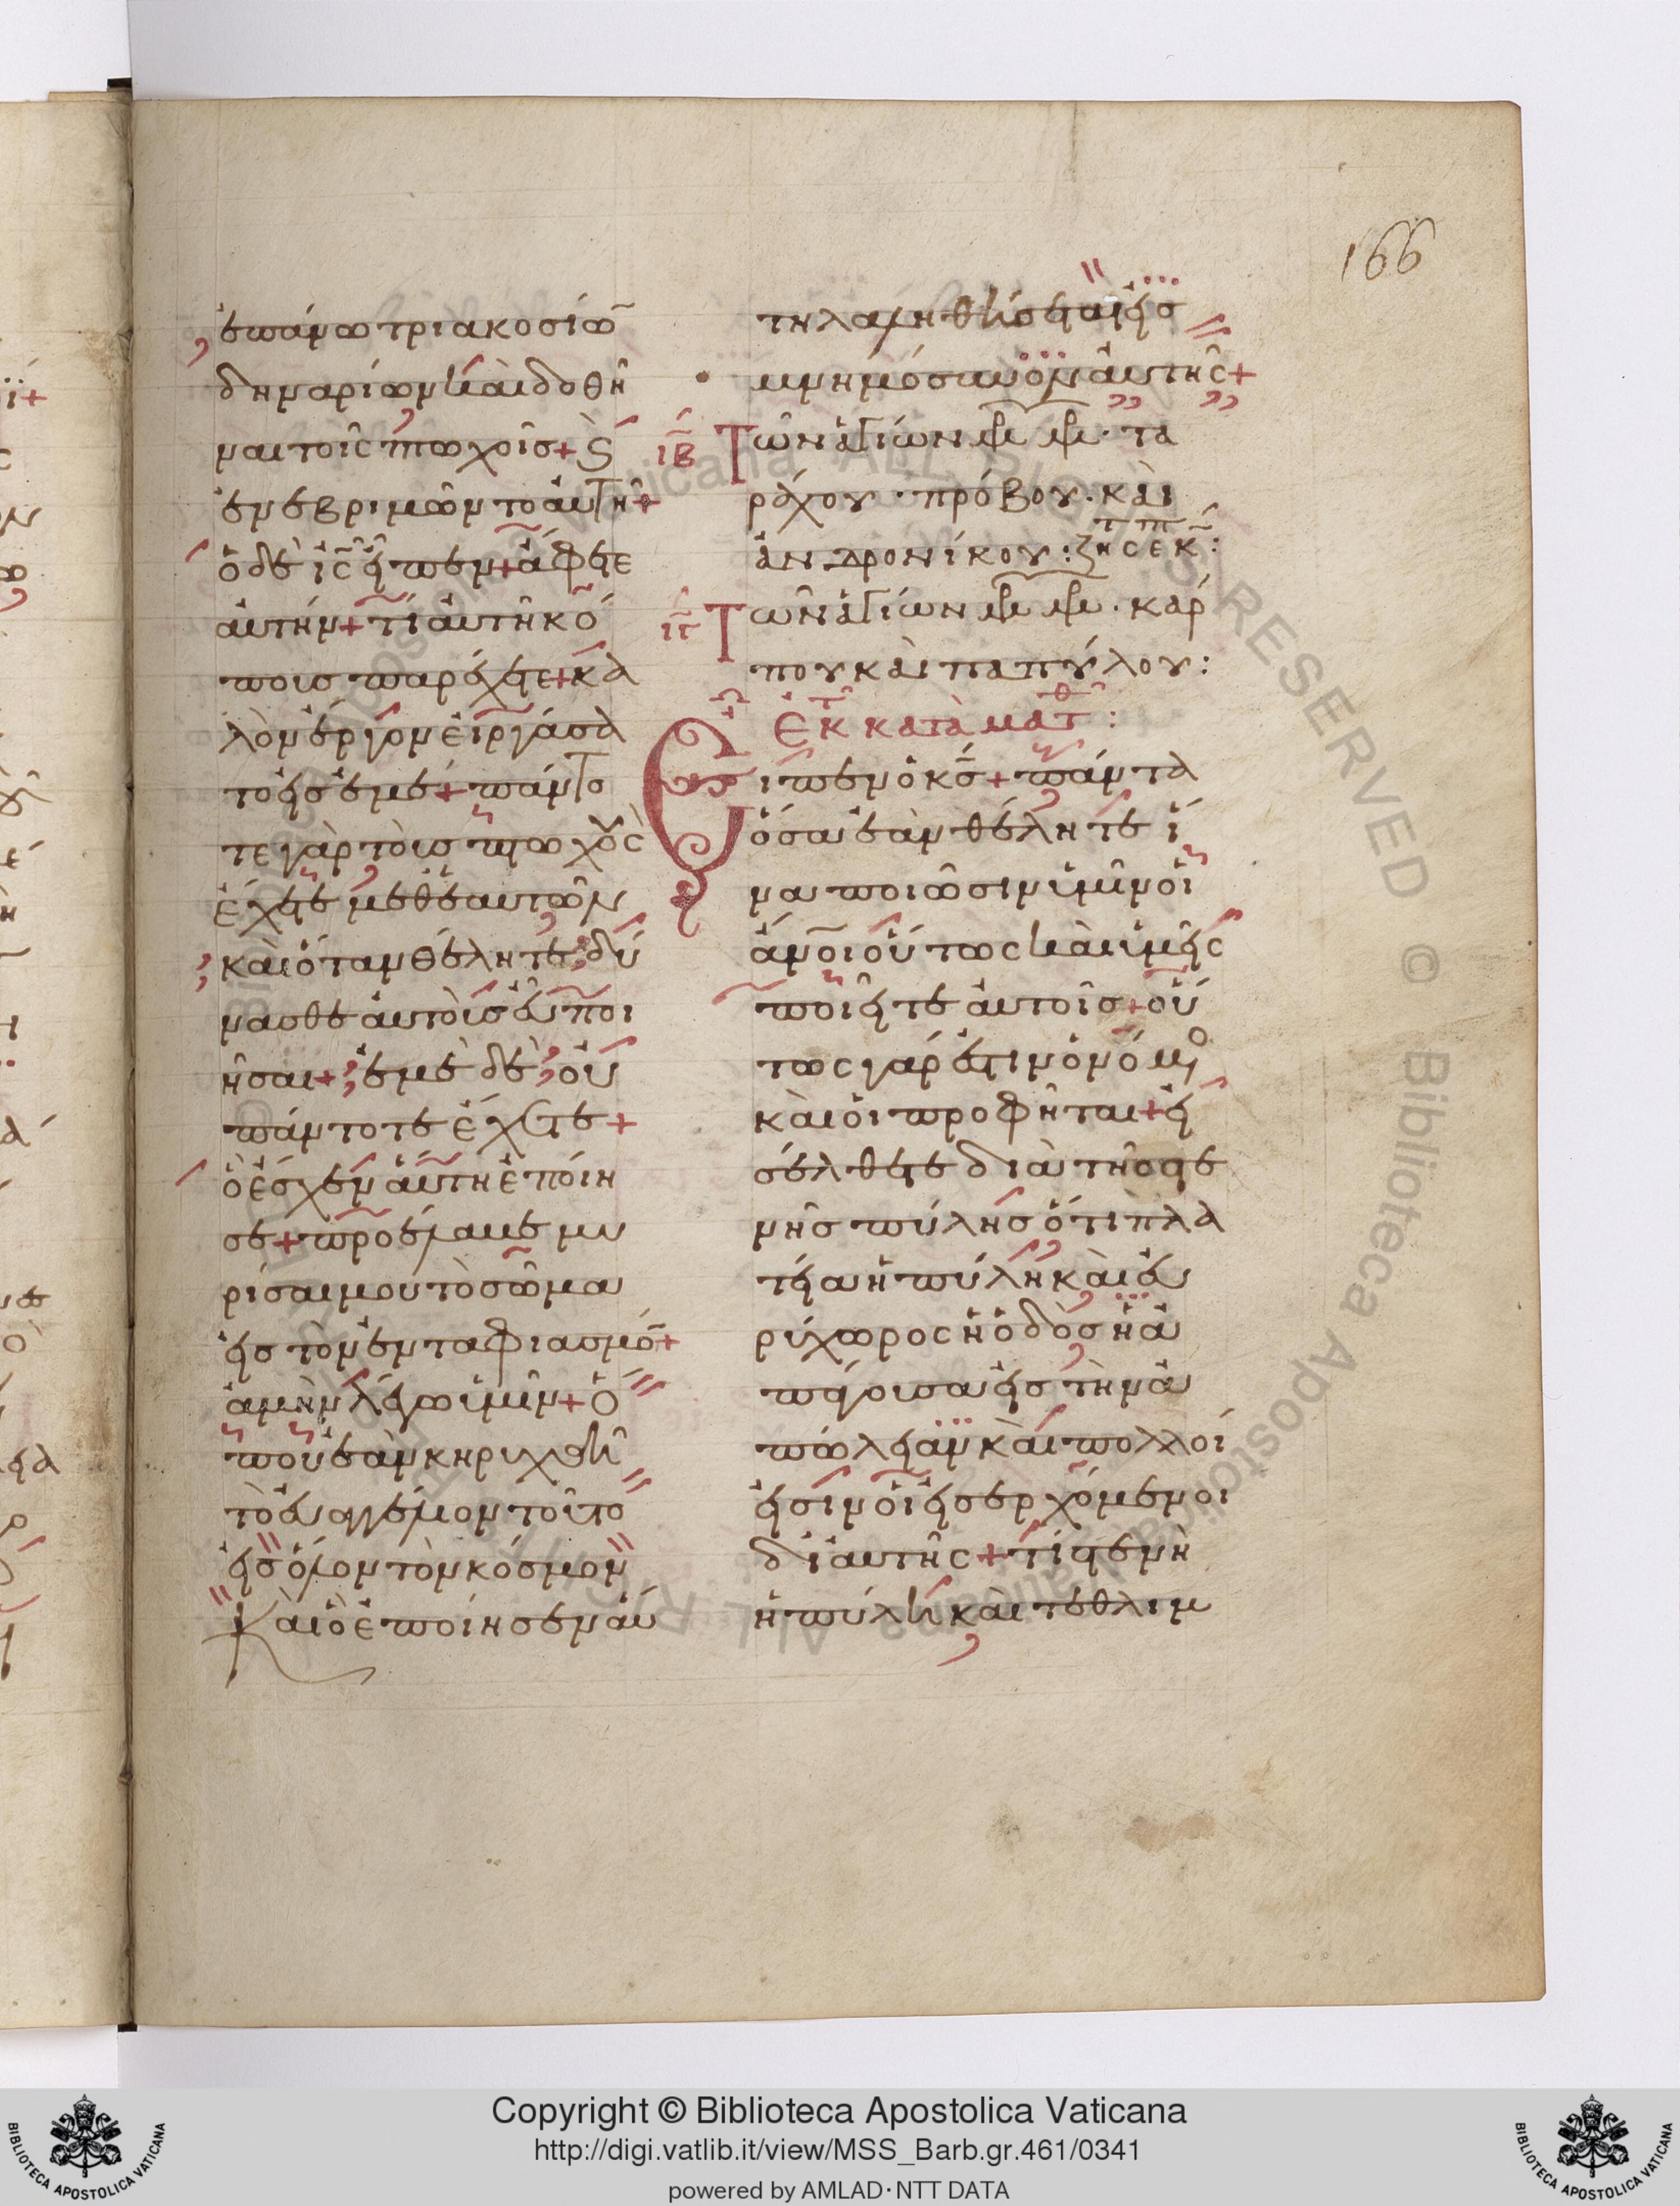 166
ἐπάνω τριακοσίω̅
δηναρίων καὶ δοθῆ
ναι τοῖς πτωχοῖσ+ ϗ
ἐνεβριμῶντο αὐτῆ+
ὁ δὲ ι̅ς̅ εἶπεν+ ἄφετε
αὐτήν+ τί αὐτῆ κό
πουσ παρέχετε+ κα
λὸν ἔργον εἰργάσα
το εἰσ ἐμέ+ πάντο
τε γὰρ τοὺσ πτωχοὺς
ἔχετε μεθ' ἑαυτῶν
καὶ ὅταν θέλητε; δύ
νασθε αὐτοὺσ εὖ ποι
ῆσαι+; ἐμὲ δὲ; οὐ
πάντοτε ἔχετε+
ὃ ἔσχεν αὕτη ἐποίη
σε+ προέλαβε μυ
ρίσαι μου τὸ σῶμα
εἰσ τὸν ἐνταφιασμό̅+
ἀμὴν λέγω ὑμῖν+ ὅ
που ἐὰν κηρυχθῆ
τὸ εὐαγγέλιον τοῦτο
εἰσ ὅλον τὸν κόσμον
Καὶ ὃ ἐποίησεν αὕ
τη λαληθήσεται εἰσ
μνημόσυνον αὐτῆς+
ιβ Τῶν ἁγίων μμ· τα
ράχου· πρόβου· καὶ
ἀνδρονίκου: ζη
ιγ Τῶν ἁγίων μμ· κάρ
που καὶ παπύλου:
ἐκ τ κατὰ ματθ:
Εἶπεν ὁ κ̅ς̅+ πάντα
ὅσα ἐὰν θέλητε ἵ
να ποιῶσιν ὑμῖν οἱ
ἄνοι οὕτως καὶ ὑμεῖς
ποιεῖτε αὐτοῖσ+ οὕ
τως γάρ ἐστιν ὁ νόμο
καὶ οἱ προφῆται+ εἰ
σέλθετε διὰ τῆσ στε
νῆσ πύλησ ὅτι πλα
τεῖα ἡ πύλη καὶ εὐ
ρύχωρος ἡ ὁδὸσ ἡ ἀ
πάγουσα εἰσ τὴν ἀ
πώλειαν καὶ πολλοί
εἰσιν οἱ εἰσερχόμενοι
δι' αὐτῆς+ τί στενὴ
ἡ πύλη καὶ τεθλιμ
Copyright © Biblioteca Apostolica Vaticana
http://digi.vatlib.it/view/MSS_Barb.gr.461/0341
powered by AMLAD·NTT DATA